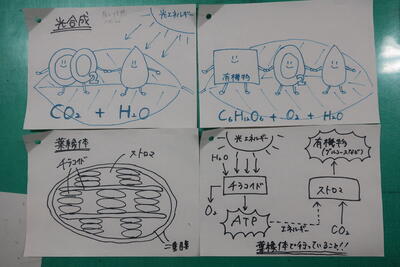 光合成
光エネルギー
CO2
CO2 + H2O
有機物
O2
C6H12O6 + O2 + H2O
葉緑体
チラコイド
ストロマ
二重膜
光エネルギー
H2O
チラコイド
O2
ATP
エネルギー
有機物
(グルコースなど)
ストロマ
CO2
葉緑体で行っていること!!